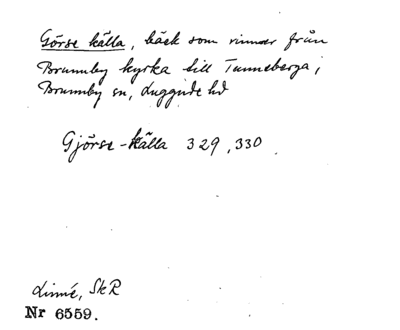 Görse källa, bäck som rinner från
Brunnby kyrka till Tunneberga,
Brunnby sn, Luggude hd
Gjörse-källa 329, 330
Linné, SkR
Nr 6559.